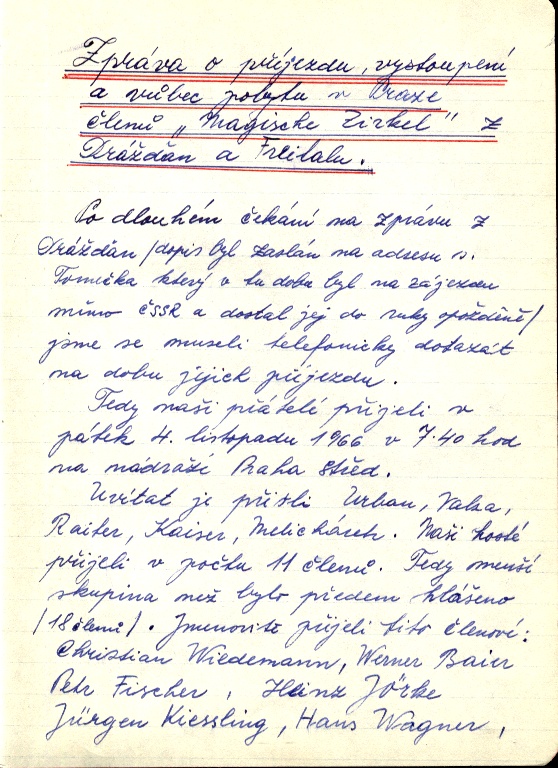 Zpráva o příjezdu, vystoupení
a vůbec pobytu v Praze
členů „Magische Zirkel" z
Drážďan a Freitalu.
Po dlouhém čekání na zprávu z
Drážďan /dopis byl zaslán na adresu s.
Tomíčka který v tu dobu byl na zájezdu
mimo ČSSR a dostal jej do ruky opožděně/
jsme se museli telefonicky dotázat
na dobu jejich příjezdu.
Tedy naši přátelé přijeli v
pátek 4. listopadu 1966 v 7.40 hod
na nádraží Praha střed.
Uvítat je přišli Urban, Valsa,
Raiter, Kaiser, Melichárek. Naši hosté
přijeli v počtu 11 členů. Tedy menší
skupina než bylo předem hlášeno
/18 členů/. Jmenovitě přijeli tito členové:
Christian Wiedemann, Werner Baier
Petr Fischer, Heinz Jörke
Jürgen Kiessling, Hans Wagner,